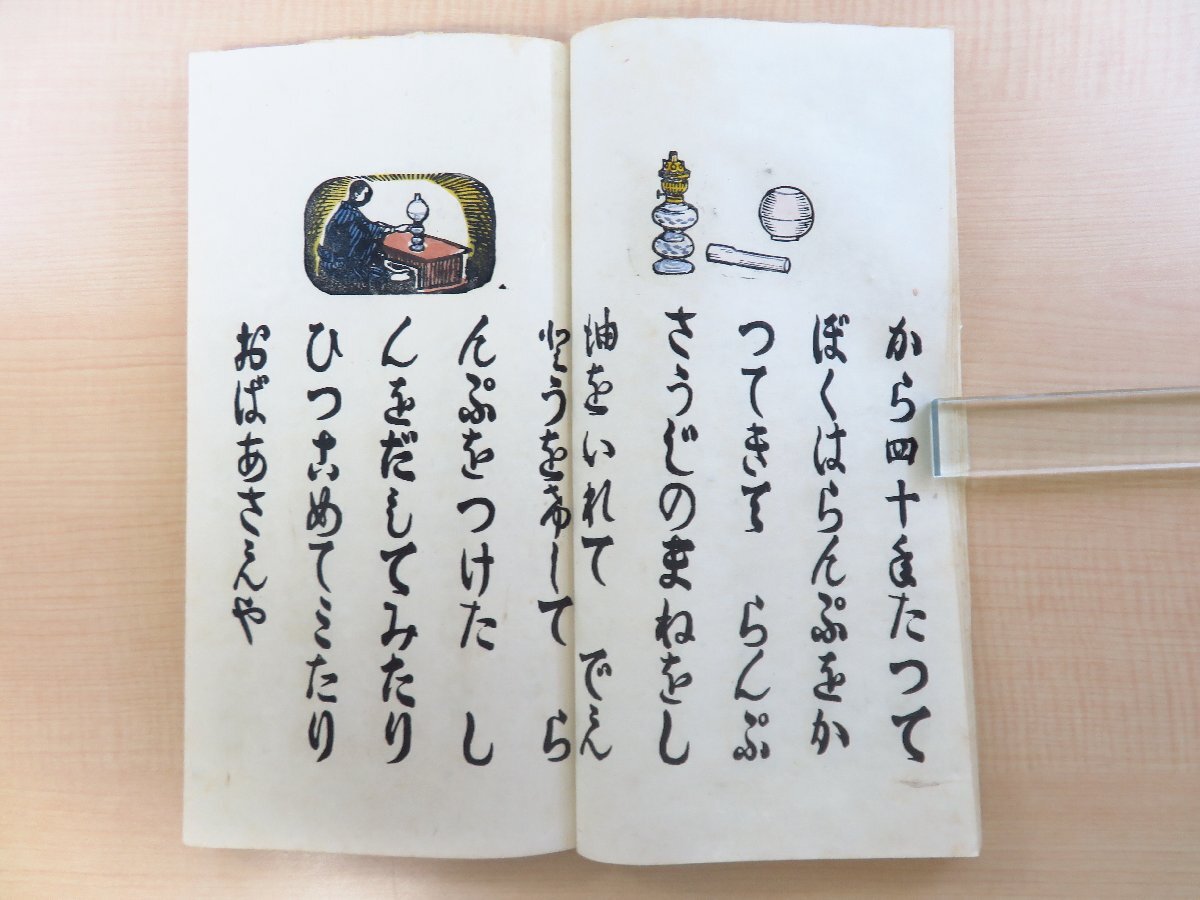 から四十年たつて
ぼくはらんぷをか
つてきて らんぷ
さうじのまねをし
油をいれて でん
とうをけして ら
んぷをつけた し
んをだしてみたり
ひつこめてミたり
おばあさんや